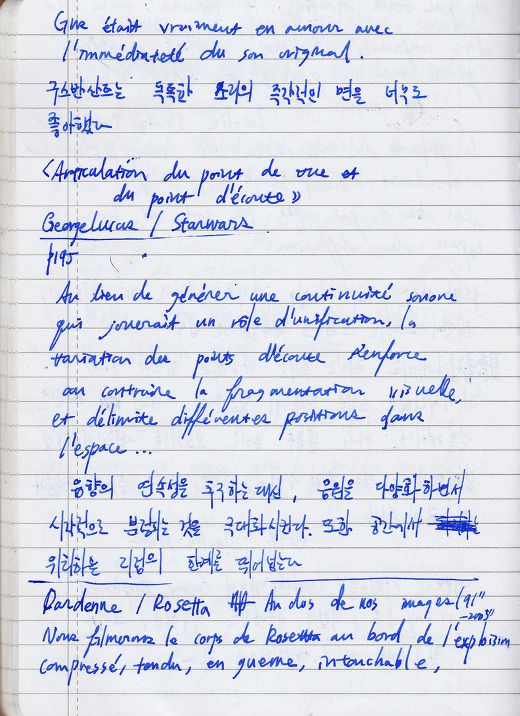 Gus était vraiment en amour avec
l'immédiateté du son original.
구스반산트는 독특한 소리의 즉각적인 면을 너무도
좋아했다
<Articulation du point de vue et
du point d'écoute »
George Lucas / Starwars
p195
Au lieu de générer une continuité sonore
qui jouerait un rôle d'unification, la
variation des points d'écoute renforce
au contraire la fragmentation visuelle,
et délimite différentes positions dans
l'espace ...
음향의 연속성을 추구하는 대신, 음원을 다양화하면서
시각적으로 분할되는 것을 극대화시킨다. 또한 공간에서
위치하는 한계를 뛰어넘는다
Dardenne / Rosetta Au dos de nos images (91"
-2005"
Nous filmerons le corps de Rosetta au bord de l'explosion
compressé, tendu, en guerre, intouchable,